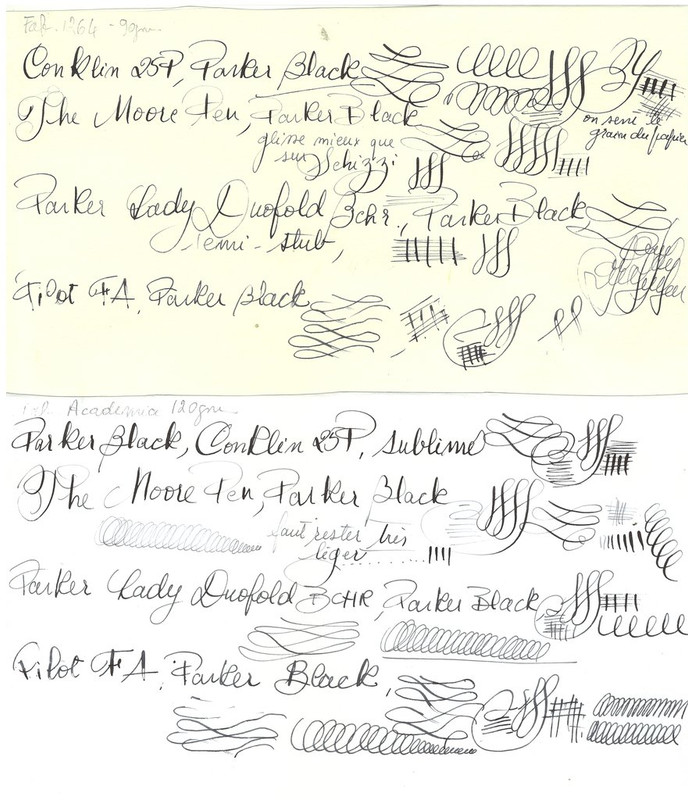 Fab. 1264 - 90gm.
Conklin 25P, Parker Black
The Moore Pen, Parker Black
on sent le
grain du papier
glisse mieux que
sur Schizzi
Parker Lady Duofold Bchr., Parker Black
semi-stub,
Pilot FA, Parker Black
Fab. Academia 120gm
Parker Black, Conklin 25P, sublime
The Moore Pen, Parker Black
faut rester très
léger
Parker Lady Duofold BCHR, Parker Black
Pilot FA, Parker Black,